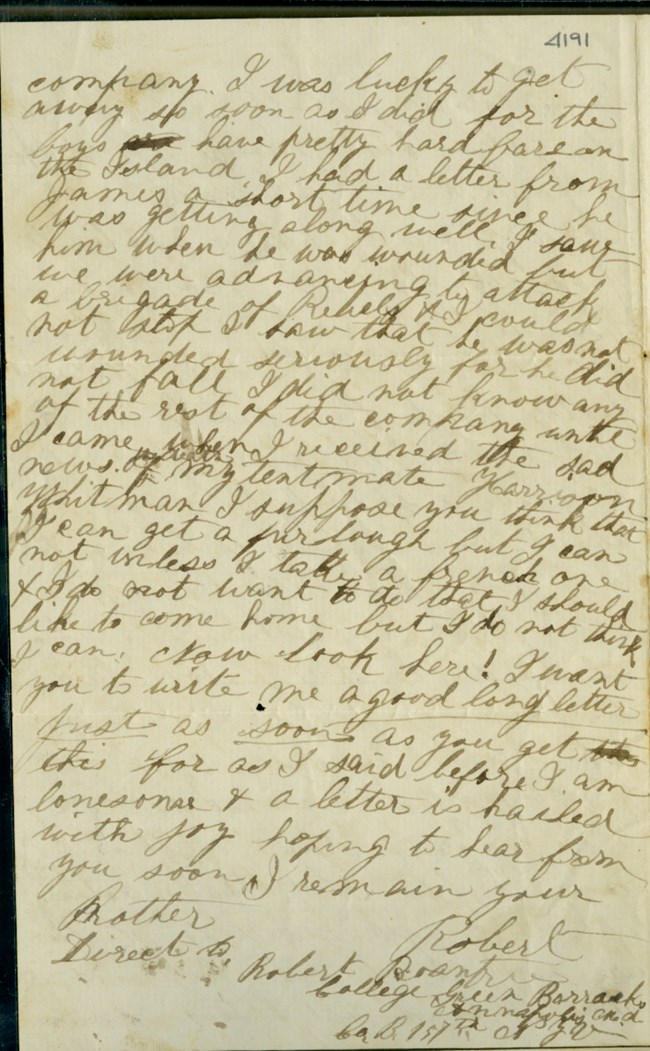 4191
company. I was lucky to get
away so soon as I did for the
boys have pretty hard fare on
the Island, I had a letter from
James a short time since he
was getting along well I saw
him when he was wounded but
we were advancing to attack
a brigade of Rebels & I could
not stop I saw that he was not
wounded seriously for he did
not fall I did not know any
of the rest of the company until
I came when I received the sad
news of my tent mate Harrison
Whitman I suppose you think that
I can get a furlough but I can
not unless I take a french one
& I do not want to do that I should
like to come home but I do not think
I can. Now look here! I want
you to write me a good long letter
just as soon as you get
this for as I said before I am
lonesome & a letter is hailed
with joy hoping to hear from
you soon, I remain your
Brother
Robert
Direct to,
Robert
College Green Barracks
Annapolis Md
Co B. 151st N Y V